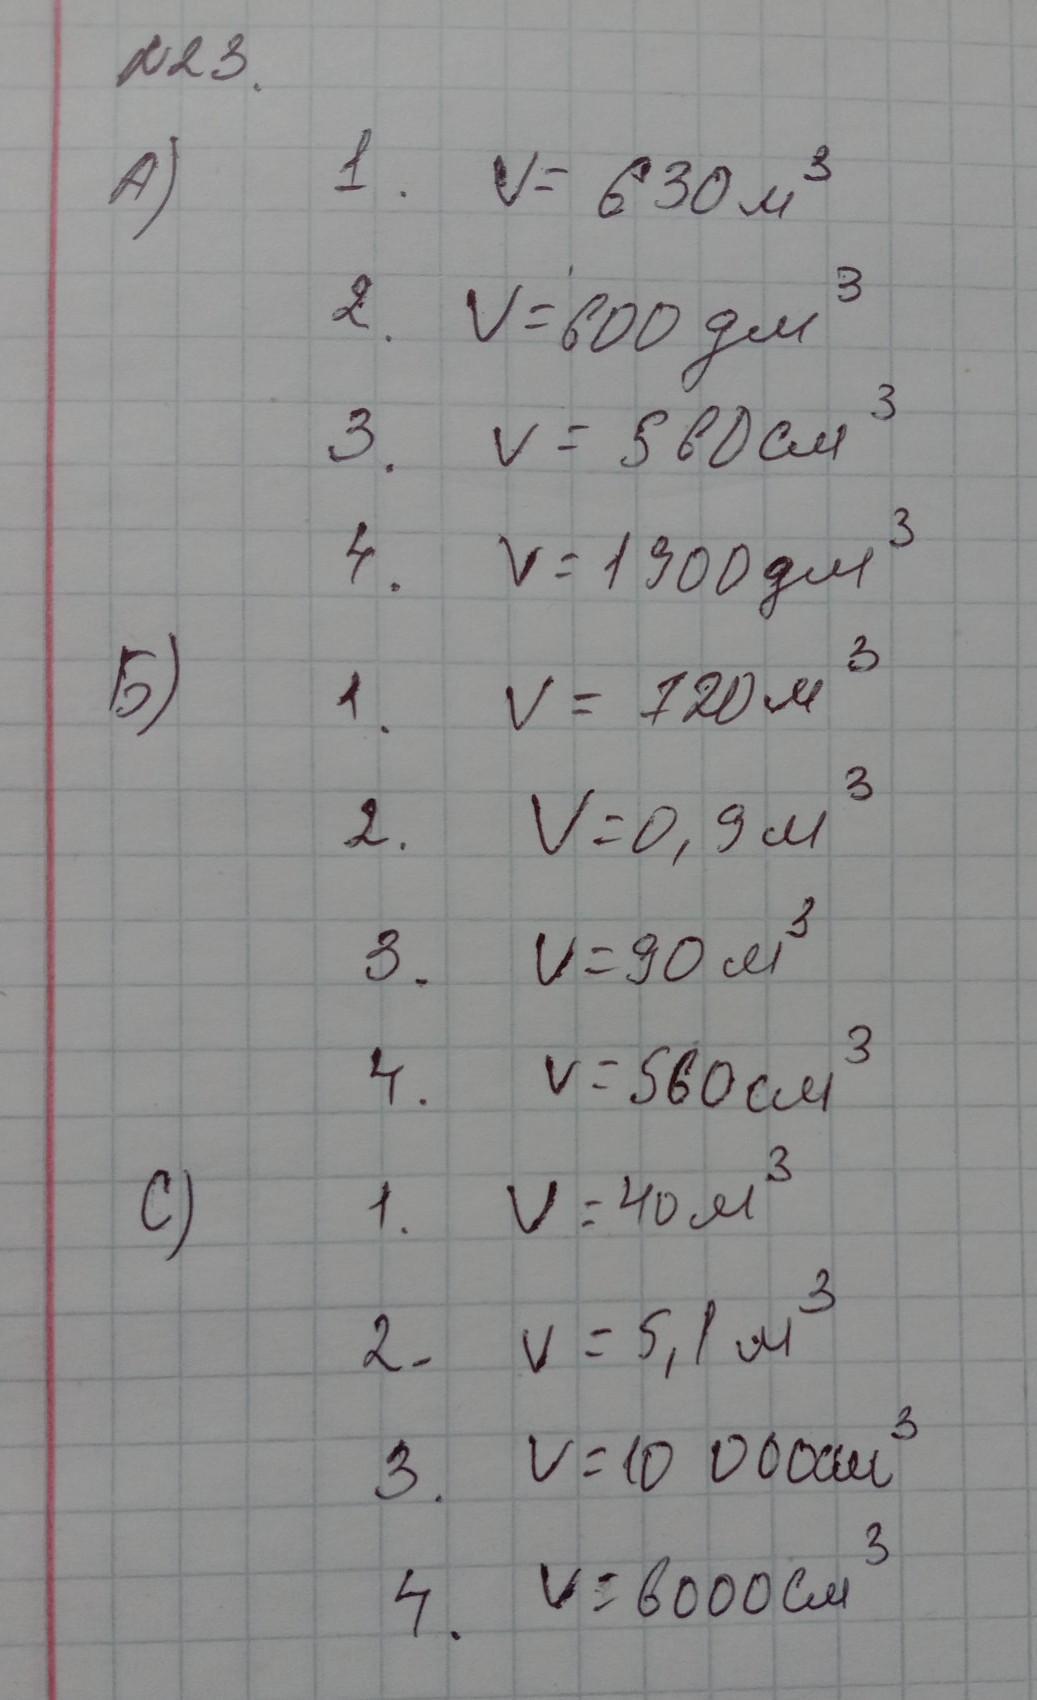 №23.
А) 1. V= 630 м³
2. V=600 дм³
3. V= 560 см³
4. V=1900 дм³
Б) 1. V= 720 м³
2. V=0,9 м³
3. V=90 м³
4. V=560 см³
С) 1. V=40 м³
2- V=5,1 м³
3. V=10 000 см³
4. V=6000 см³